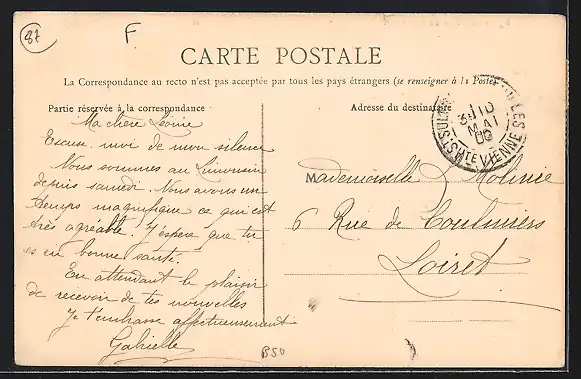 87
F
CARTE POSTALE
La Correspondance au recto n'est pas acceptée par tous les pays étrangers (se renseigner à la Poste)
Partie réservée à la correspondance
Adresse du destinataire
Ma chère Léonie
Excuse-moi de mon silence
Nous sommes au Limousin
depuis samedi. Nous avons un
temps magnifique ce qui est
très agréable. J'espère que tu
es en bonne santé.
En attendant le plaisir
de recevoir de tes nouvelles
Je t'embrasse affectueusement
Gabrielle
MAI
HTE VIENNE
Mademoiselle L Molinie
6 Rue de Coulmiers
Loiret
BSU